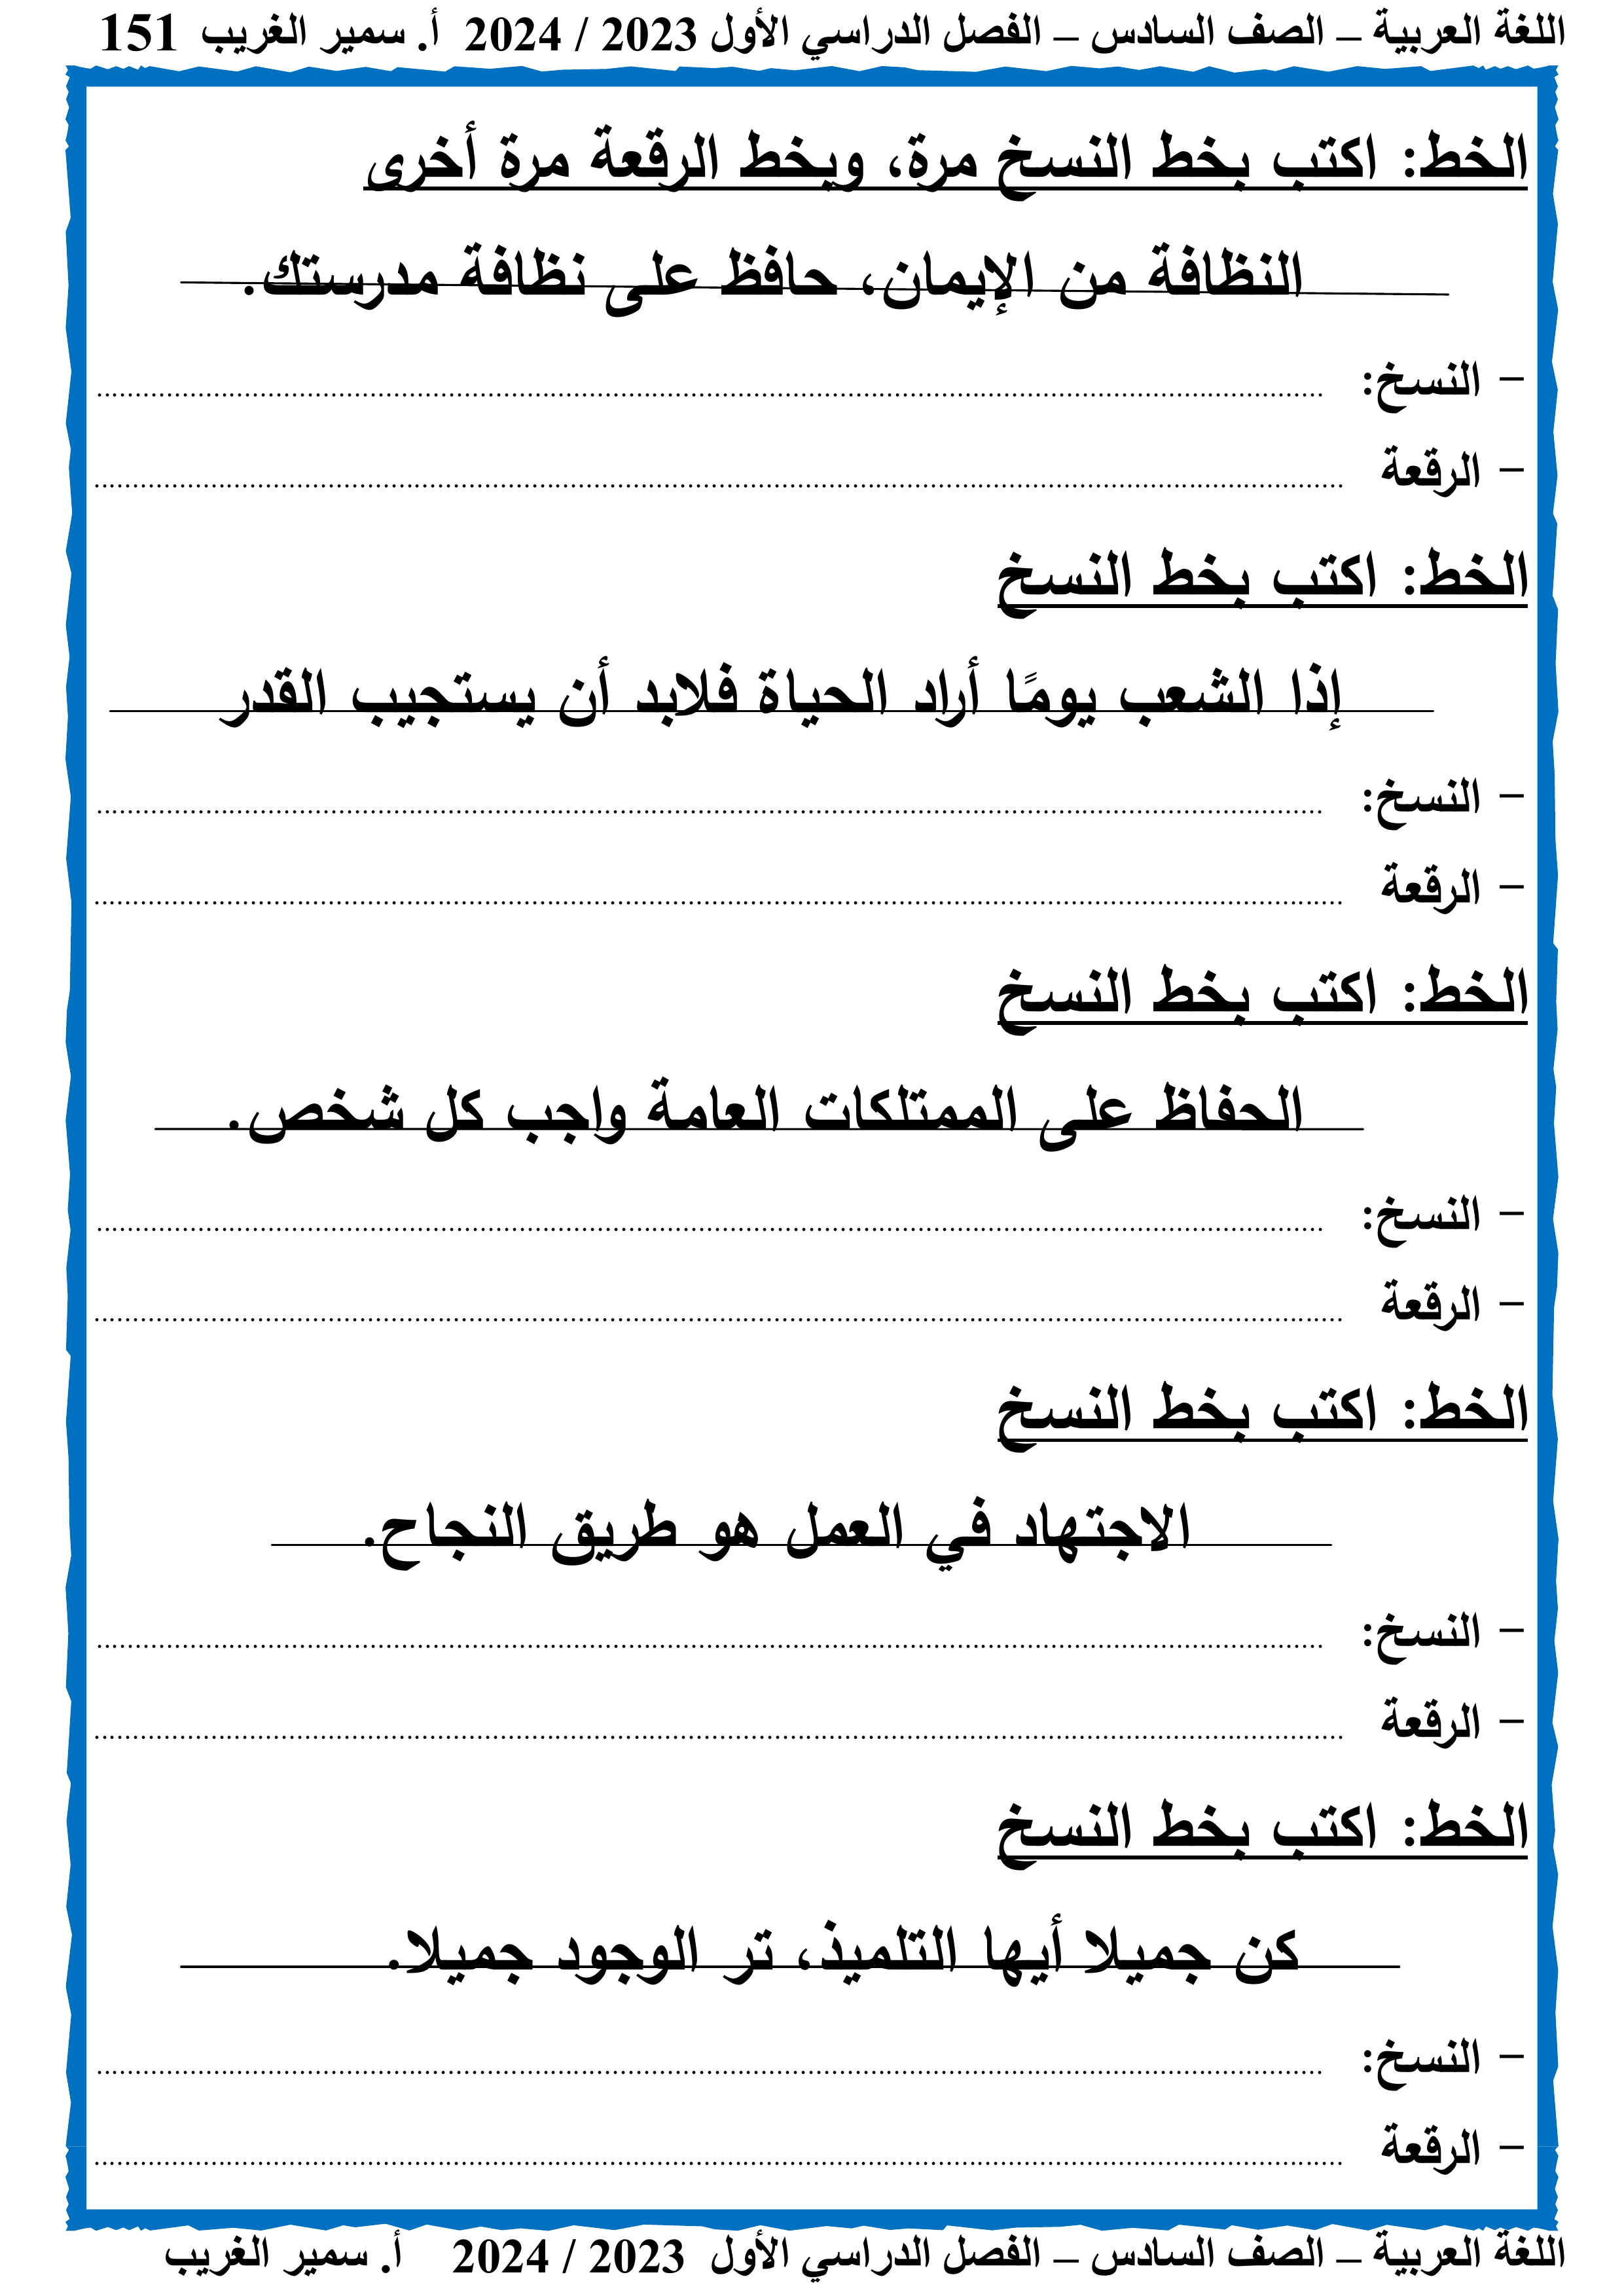 اللغة العربية – الصف السادس – الفصل الدراسي الأول 2023 / 2024 أ. سمير الغريب 151
الخط: اكتب بخط النسخ مرة، وبخط الرقعة مرة أخرى
النظافة من الإيمان، حافظ على نظافة مدرستك.
– النسخ: ........................................
– الرقعة ........................................
الخط: اكتب بخط النسخ
إذا الشعب يومًا أراد الحياة فلابد أن يستجيب القدر
– النسخ: ........................................
– الرقعة ........................................
الخط: اكتب بخط النسخ
الحفاظ على الممتلكات العامة واجب كل شخص.
– النسخ: ........................................
– الرقعة ........................................
الخط: اكتب بخط النسخ
الاجتهاد في العمل هو طريق النجاح.
– النسخ: ........................................
– الرقعة ........................................
الخط: اكتب بخط النسخ
كن جميلا أيها التلميذ، تر الوجود جميلا.
– النسخ: ........................................
– الرقعة ........................................
اللغة العربية – الصف السادس – الفصل الدراسي الأول 2023 / 2024 أ. سمير الغريب